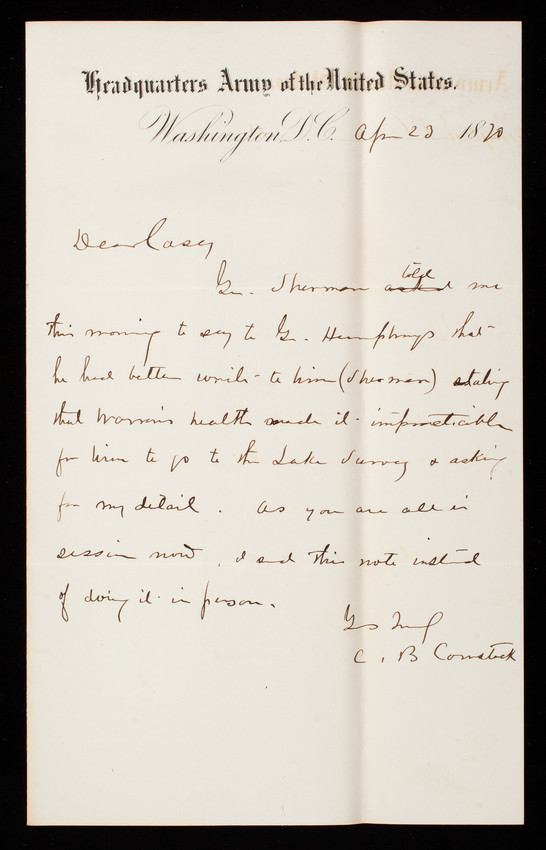 Headquarters Army of the United States.
Washington, D.C. Apr 23 1870
Dear Casey
told
Gen. Sherman asked me
this morning to say to Gn. Humphreys that
he had better write to him (Sherman) stating
that Warren's health made it impracticable
for him to go to the Lake Survey & asking
for my detail. As you are all in
session now, I send this note instead
of doing it in person.
Yrs Truly
C. B Comstock